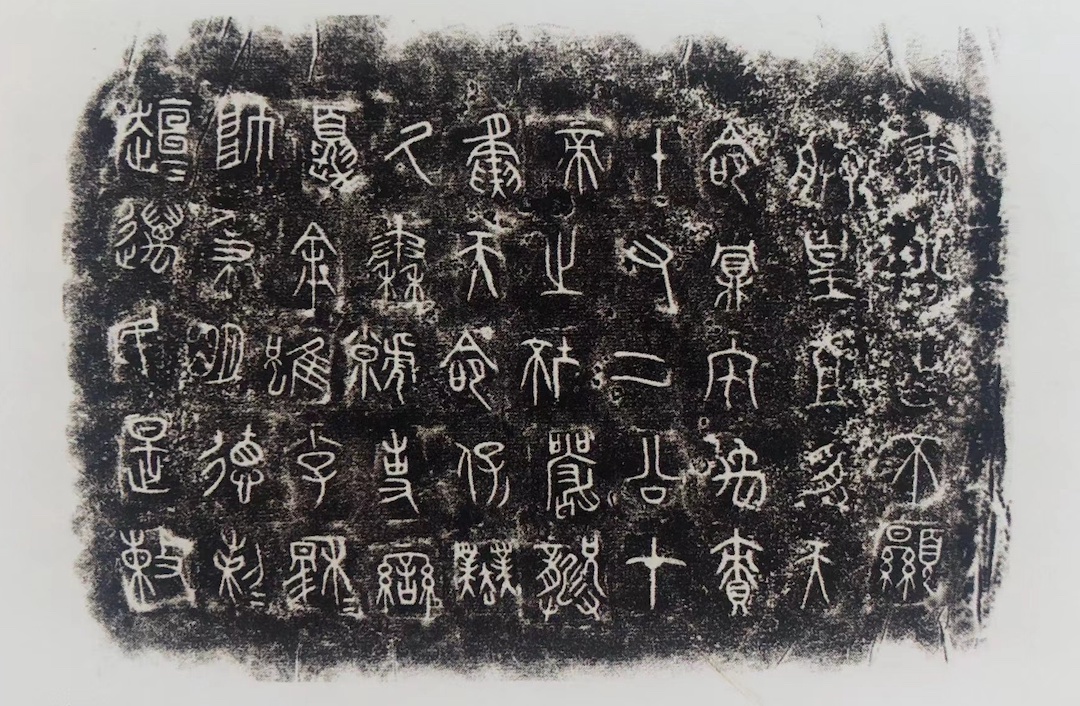 秦公曰不顯
朕皇且受天
命鼏宅禹賚
十又二公才
帝之坏嚴龏
夤天命保業
氒秦虩事蠻
夏余雖小子穆=
帥秉明德剌=
趄=邁民是敕